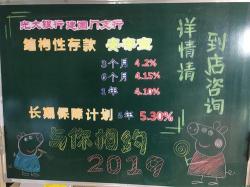 光大银行 建国门支行
结构性存款
3个月 4.2%
6个月 4.15%
1年 4.10%
长期保障计划 5年 5.30%
与你相约
2019
详情请
到店咨询